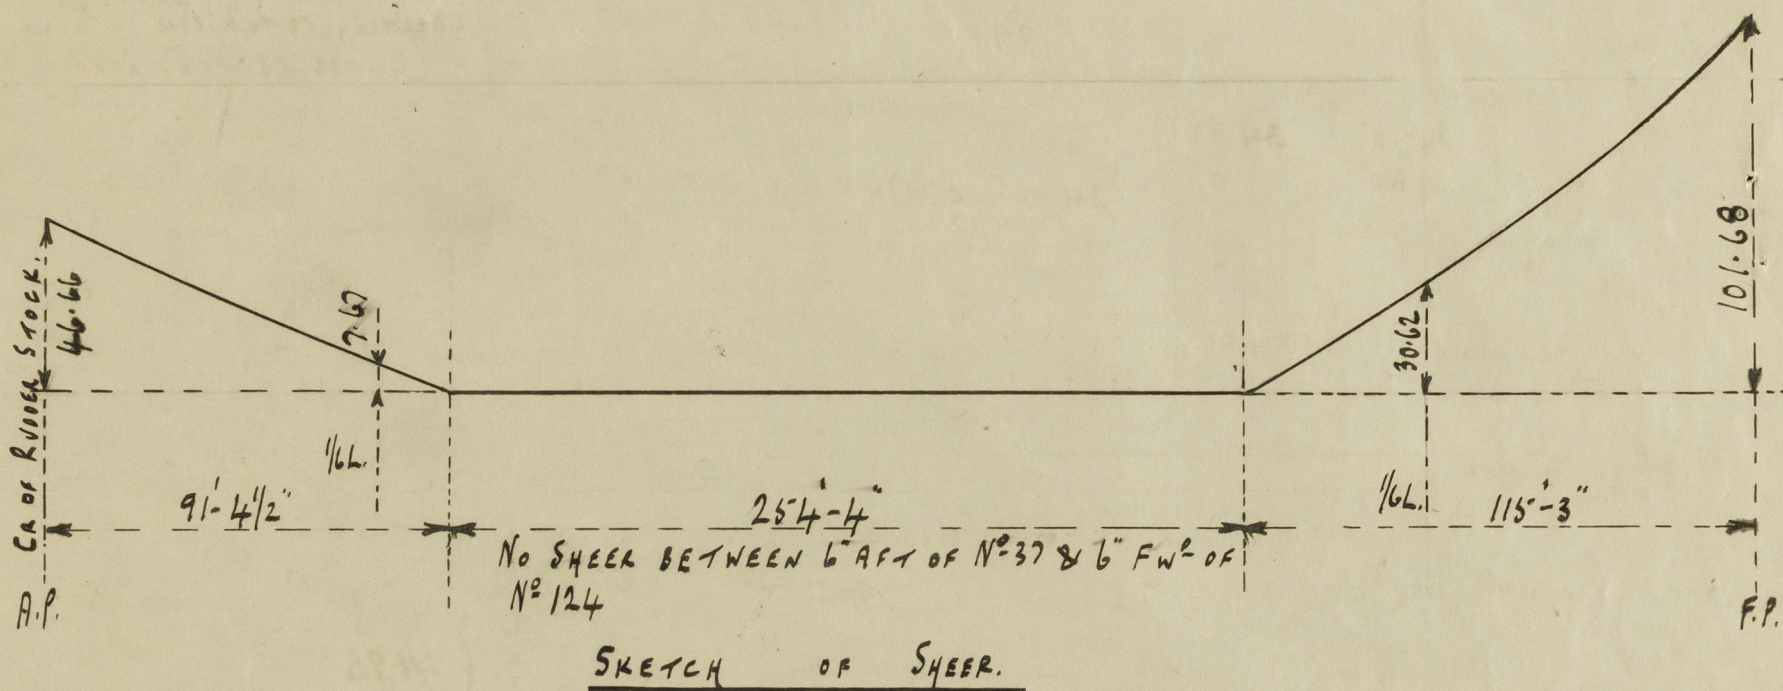 CR OF RUDDER STOCK.
46.66
7.67
1/6L.
30.62
1/6L.
101.68
91'-4 1/2"
254'-4"
115'-3"
NO SHEER BETWEEN 6" AFT OF Nº 37 & 6" FWD OF
Nº 124
A.P.
F.P.
SKETCH OF SHEER.